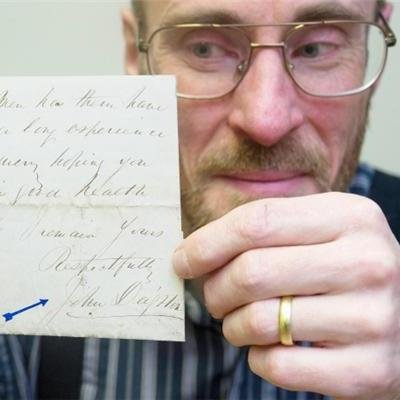 then has them have
a long experience
hoping you
good health
I remain Yours
Respectfully
John